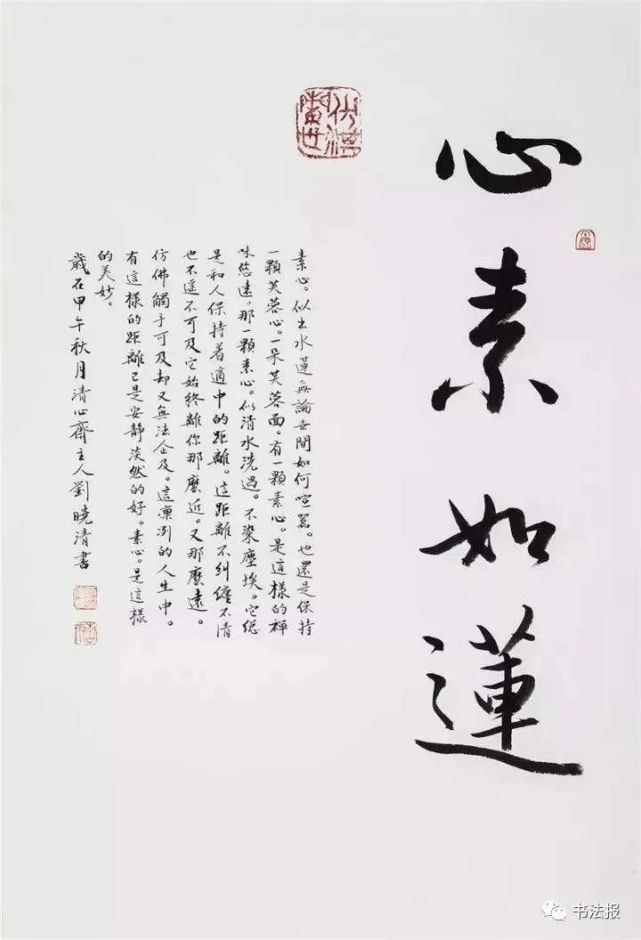 心素如蓮
素心。似出水蓮無論世間如何喧囂。也還是保持
一顆芙蓉心。一朵芙蓉面。有一顆素心。是這樣的禪
味悠遠。那一顆素心。似清水洗過。不染塵埃。它總
是和人保持着適中的距離。這距離不糾纏不清
也不遥不可及它始終離你那麽近。又那麽遠。
仿佛觸手可及却又無法企及。這凛冽的人生中。
有這樣的距離已是安静淡然的好。素心。是這樣
的美妙。
歲在甲午秋月清心齋主人劉曉清書
书法报